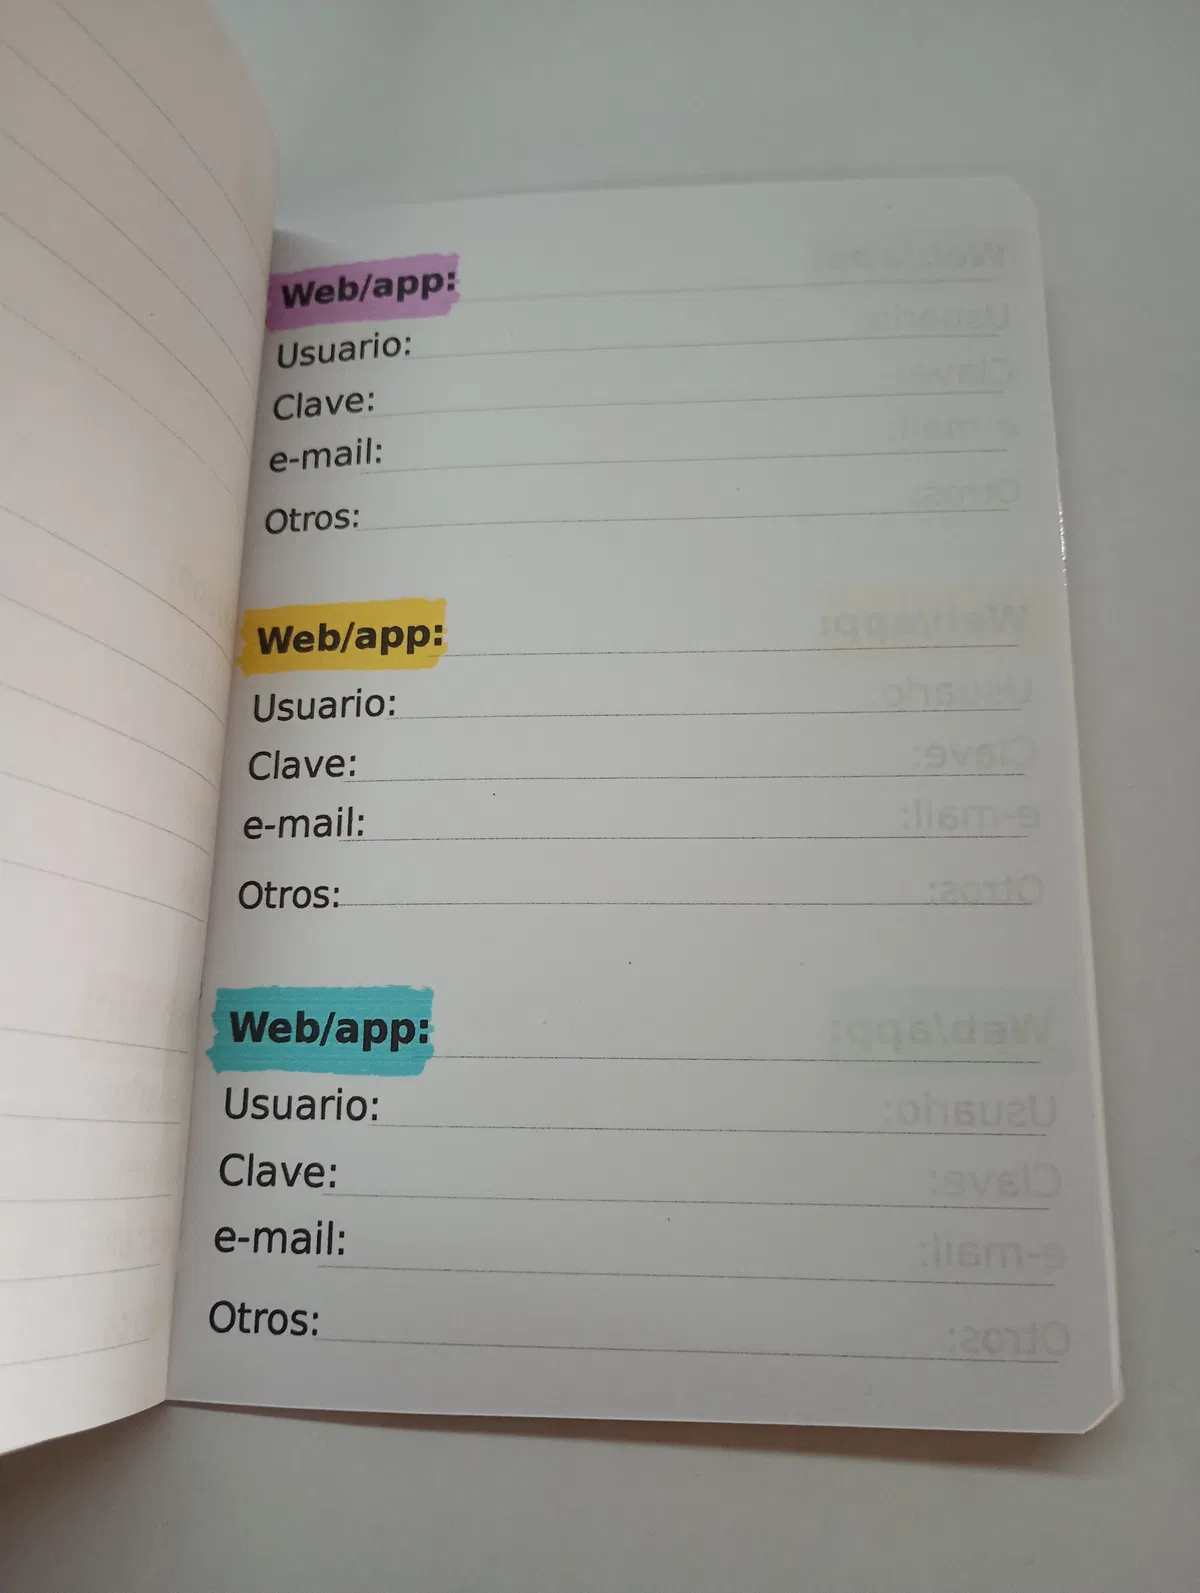 Web/app:
Usuario:
Clave:
e-mail:
Otros:
Web/app:
Usuario:
Clave:
e-mail:
Otros:
Web/app:
Usuario:
Clave:
e-mail:
Otros: